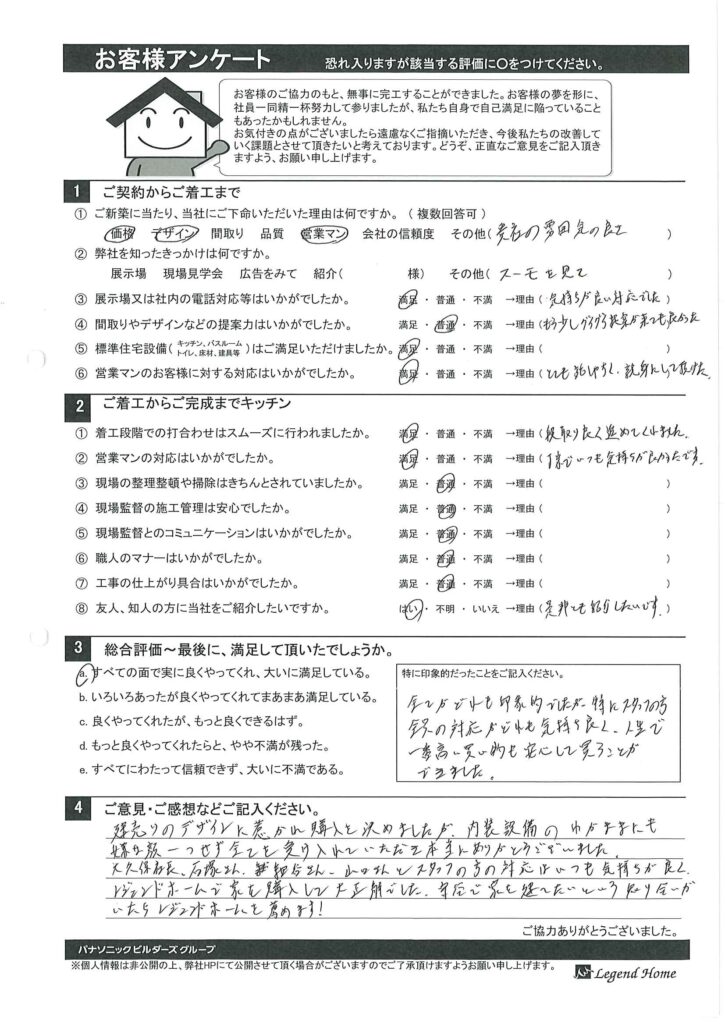 お客様アンケート 恐れ入りますが該当する評価に〇をつけてください。
お客様のご協力のもと、無事に完工することができました。お客様の夢を形に、
社員一同精一杯努力して参りましたが、私たち自身で自己満足に陥っていること
もあったかもしれません。
お気付きの点がございましたら遠慮なくご指摘いただき、今後私たちの改善して
いく課題とさせて頂きたいと考えております。どうぞ、正直なご意見をご記入頂き
ますよう、お願い申し上げます。
1 ご契約からご着工まで
① ご新築に当たり、当社にご下命いただいた理由は何ですか。（ 複数回答可 ）
価格 デザイン 間取り 品質 営業マン 会社の信頼度 その他( 雰囲気の良さ )
② 弊社を知ったきっかけは何ですか。
展示場 現場見学会 広告をみて 紹介( 様) その他( スーモを見て )
③ 展示場又は社内の電話対応等はいかがでしたか。 満足 ・ 普通 ・ 不満 →理由( 気持ちが良い対応でした )
④ 間取りやデザインなどの提案力はいかがでしたか。 満足 ・ 普通 ・ 不満 →理由( もう少しグイグイ提案が来ても良かった
⑤ 標準住宅設備( キッチン、バスルーム トイレ、床材、建具等 )はご満足いただけましたか。 満足 ・ 普通 ・ 不満 →理由( )
⑥ 営業マンのお客様に対する対応はいかがでしたか。 満足 ・ 普通 ・ 不満 →理由( とても話しやすく、親身にして頂けた。
2 ご着工からご完成までキッチン
① 着工段階での打合わせはスムーズに行われましたか。 満足 ・ 普通 ・ 不満 →理由( 段取り良く進めてくれました。
② 営業マンの対応はいかがでしたか。 満足 ・ 普通 ・ 不満 →理由( いつも気持ちが良かったです。
③ 現場の整理整頓や掃除はきちんとされていましたか。 満足 ・ 普通 ・ 不満 →理由( )
④ 現場監督の施工管理は安心でしたか。 満足 ・ 普通 ・ 不満 →理由( )
⑤ 現場監督とのコミュニケーションはいかがでしたか。 満足 ・ 普通 ・ 不満 →理由( )
⑥ 職人のマナーはいかがでしたか。 満足 ・ 普通 ・ 不満 →理由( )
⑦ 工事の仕上がり具合はいかがでしたか。 満足 ・ 普通 ・ 不満 →理由( )
⑧ 友人、知人の方に当社をご紹介したいですか。 はい ・ 不明 ・ いいえ →理由( 是非とも紹介したいです。 )
3 総合評価～最後に、満足して頂いたでしょうか。
a. すべての面で実に良くやってくれ、大いに満足している。
b. いろいろあったが良くやってくれてまあまあ満足している。
c. 良くやってくれたが、もっと良くできるはず。
d. もっと良くやってくれたらと、やや不満が残った。
e. すべてにわたって信頼できず、大いに不満である。
特に印象的だったことをご記入ください。
全てがどれも印象的でしたが、特にスタッフの方
全員の対応がどれも気持ち良く、人生で
一番高い買い物も安心して買うことが
できました。
4 ご意見・ご感想などご記入ください。
建売りのデザインに惹かれ購入を決めましたが、内装設備のわがままにも
嫌な顔一つせず全てを受け入れていただき本当にありがとうございました。
大久保 石塚さん、 山口さんとスタッフの方の対応はいつも気持ちが良く、
レジェンドホームで家を購入して大正解でした。 家を建てたいという知り合いが
いたらレジェンドホームを薦めます!
ご協力ありがとうございました。
パナソニックビルダーズグループ
※個人情報は非公開の上、弊社HPにて公開させて頂く場合がございますのでご了承頂けますようお願い申し上げます。
Legend Home